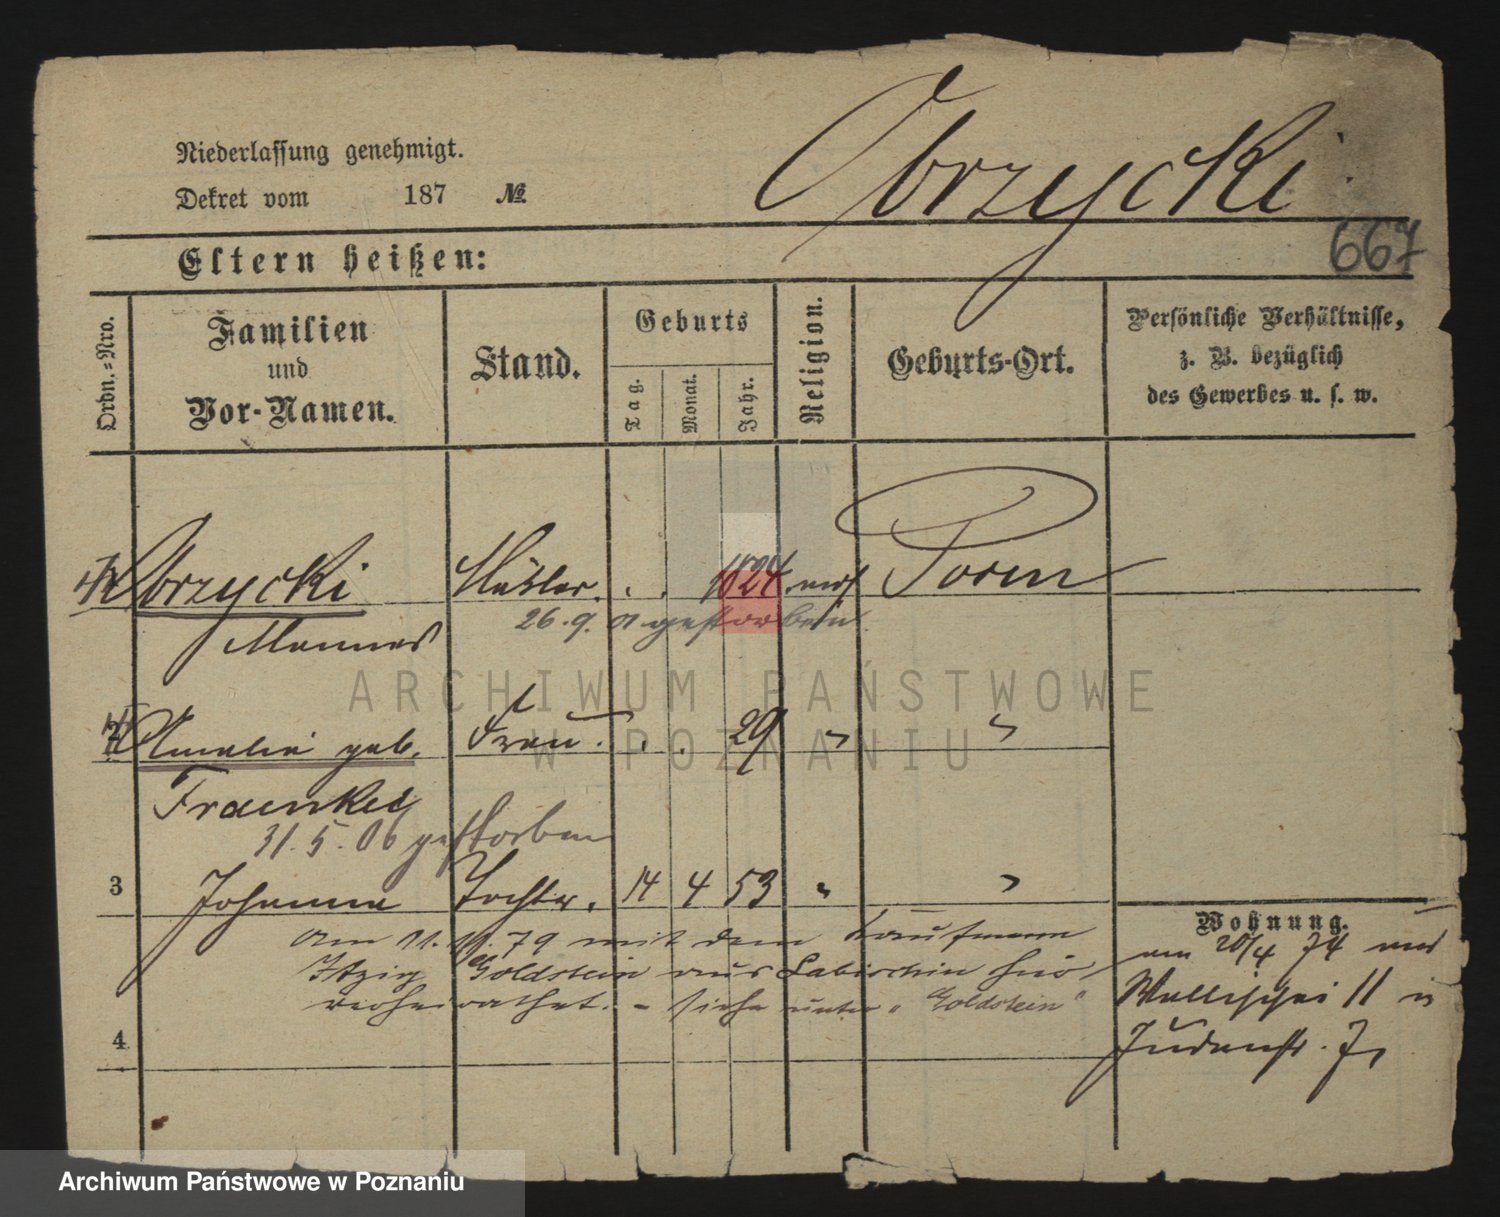 Obrzycki
Niederlassung genehmigt.
Dekret vom 187 №
667
Eltern heißen:
Ordn.-Nro.
Familien und Vor-Namen.
Stand.
Geburts
Tag.
Monat.
Jahr.
Religion.
Geburts-Ort.
Persönliche Verhältnisse,
z. B. bezüglich
des Gewerbes u. s. w.
Obrzycki . . 1824 mos Posen
26.9.01 gestorben
Mannes
Amalie geb. Frau. . . 29 " "
Fraenkel
31.5.06 gestorben
3 Johanna Tochter. 14 4 53 " "
Wohnung.
am 20/4 74 nach
Wallischei 11 in
Judenstr. 7,
Am 11. 11. 79 mit dem Kaufmann
Itzig Goldstein aus Labischin hier
verheirathet. - siehe unter "Goldstein"
4
ARCHIWUM PAŃSTWOWE
W POZNANIU
Archiwum Państwowe w Poznaniu